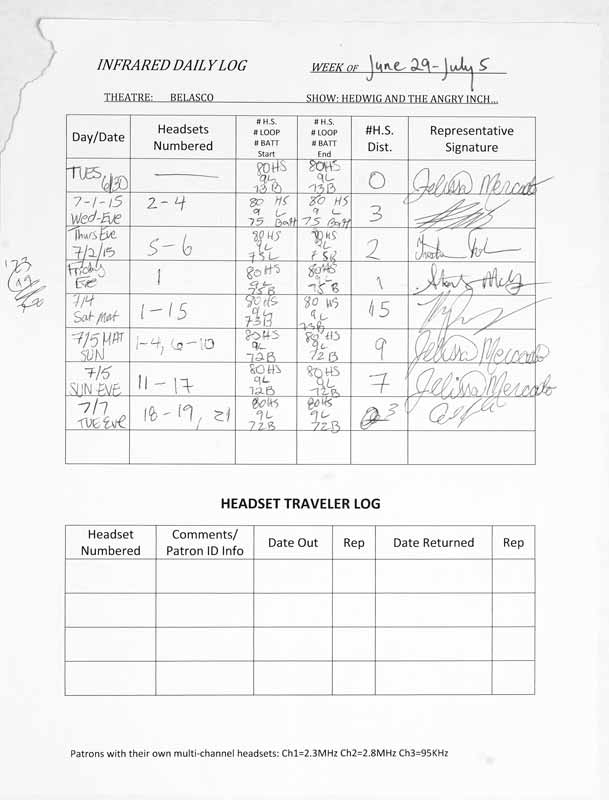 INFRARED DAILY LOG WEEK OF June 29-July 5
THEATRE: BELASCO SHOW: HEDWIG AND THE ANGRY INCH...
Day/Date Headsets Numbered # H.S. # LOOP # BATT Start # H.S. # LOOP # BATT End #H.S. Dist. Representative Signature
TUES 6/30 80HS 9L 73B 80HS 9L 73B 0 Jelissa Mercado
7-1-15 Wed-Eve 2-4 80 HS 9 L 75 Batt 80 HS 9 L 75 Batt 3
Thurs Eve 7/2/15 5-6 80 HS 9L 75L 80 HS 9L 75B 2
Friday Eve 1 80HS 9L 75B 80HS 9L 75B 1
7/4 Sat Mat 1-15 80HS 9L 73B 80 HS 9L 73B 15
7/5 MAT SUN 1-4, 6-10 80HS 9L 72B 80HS 9L 72B 9 Jelissa Mercado
7/5 SUN EVE 11-17 80HS 9L 72B 80HS 9L 72B 7 Jelissa Mercado
7/7 TUE EVE 18-19, 21 80HS 9L 72B 80HS 9L 72B 3
HEADSET TRAVELER LOG
Headset Numbered Comments/ Patron ID Info Date Out Rep Date Returned Rep
Patrons with their own multi-channel headsets: Ch1=2.3MHz Ch2=2.8MHz Ch3=95KHz